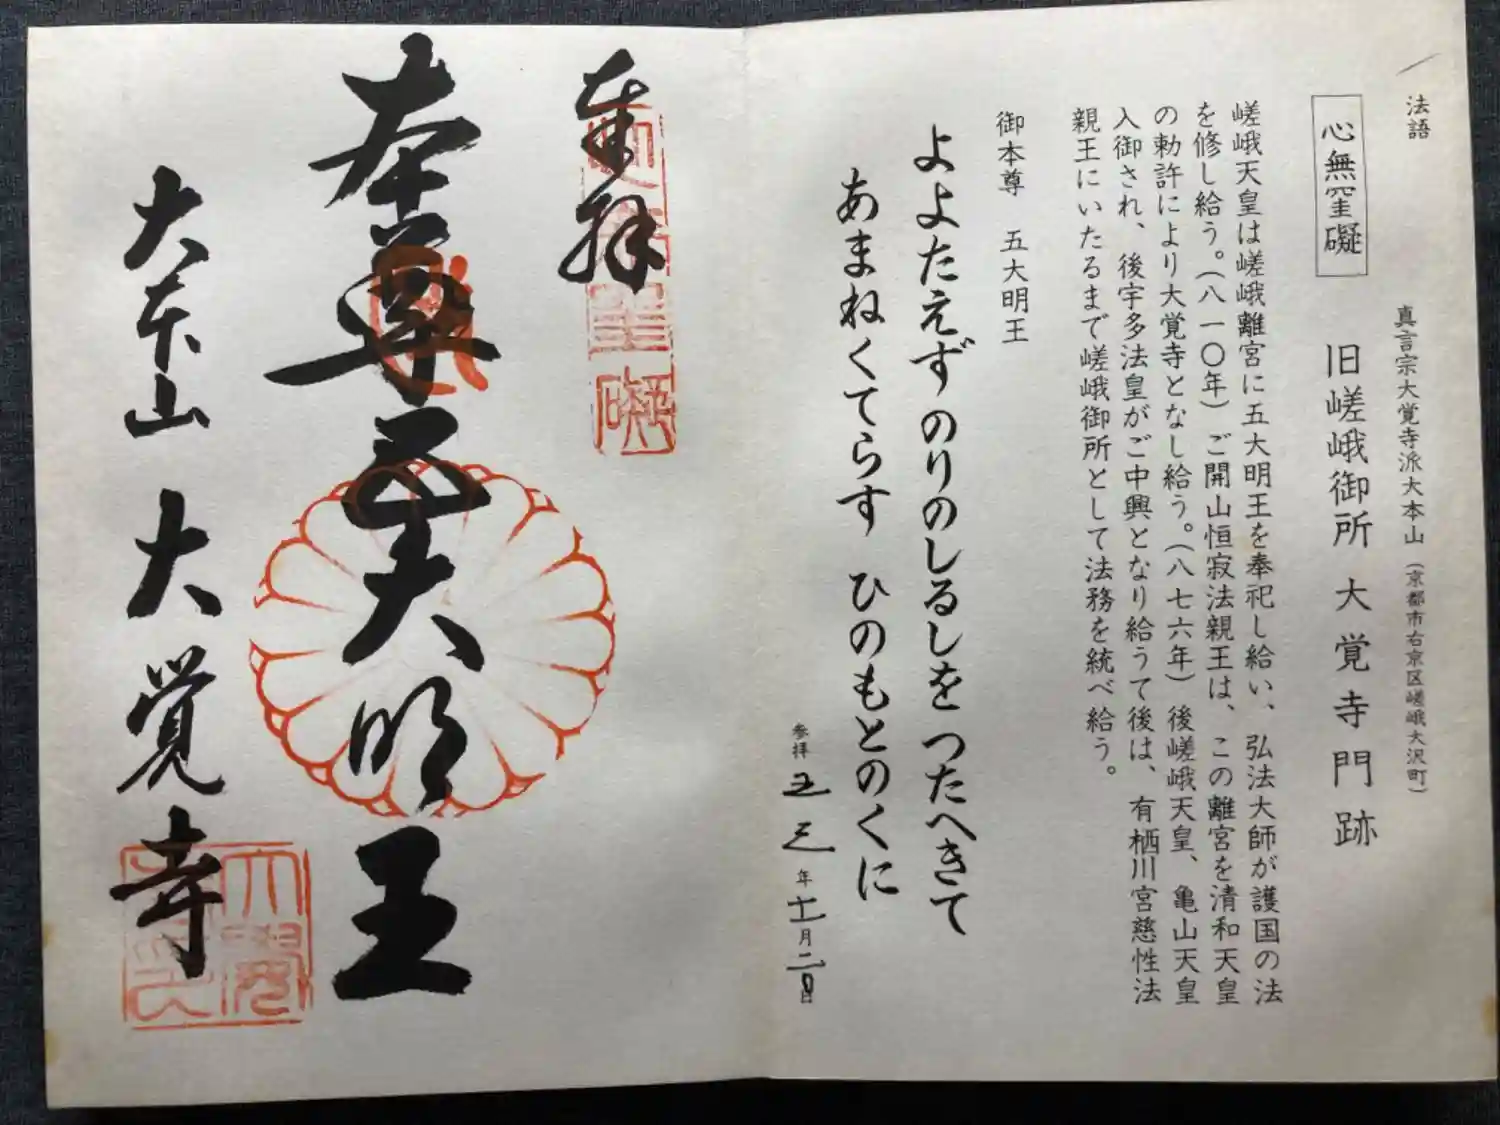 法語
心無罣礙
真言宗大覚寺派大本山(京都市右京区嵯峨大沢町)
旧嵯峨御所 大覚寺門跡
嵯峨天皇は嵯峨離宮に五大明王を奉祀し給い、弘法大師が護国の法
を修し給う。(八一〇年)ご開山恒寂法親王は、この離宮を清和天皇
の勅許により大覚寺となし給う。(八七六年)後嵯峨天皇、亀山天皇
入御され、後宇多法皇がご中興となり給うて後は、有栖川宮慈性法
親王にいたるまで嵯峨御所として法務を統べ給う。
御本尊 五大明王
よよたえずのりのしるしをつたへきて
あまねくてらす ひのもとのくに
参拝 五三年十一月二日
奉拝
心無罣礙
本尊五大明王
大本山 大覚寺